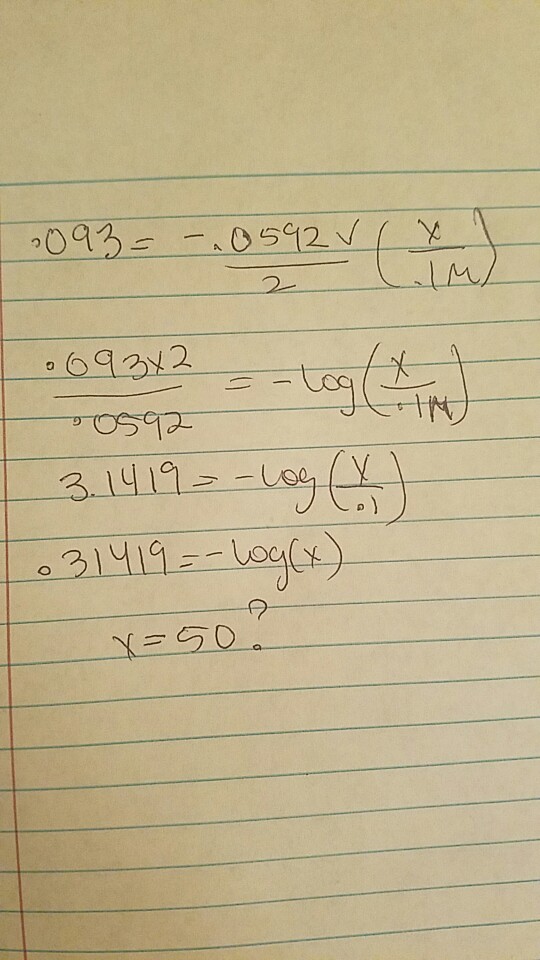 .093 = -.0592V/2 (x/.1M)
.093x2/.0592 = -log(x/.1M)
3.1419 = -log(x/.1)
.31419 = -log(x)
x = 50?